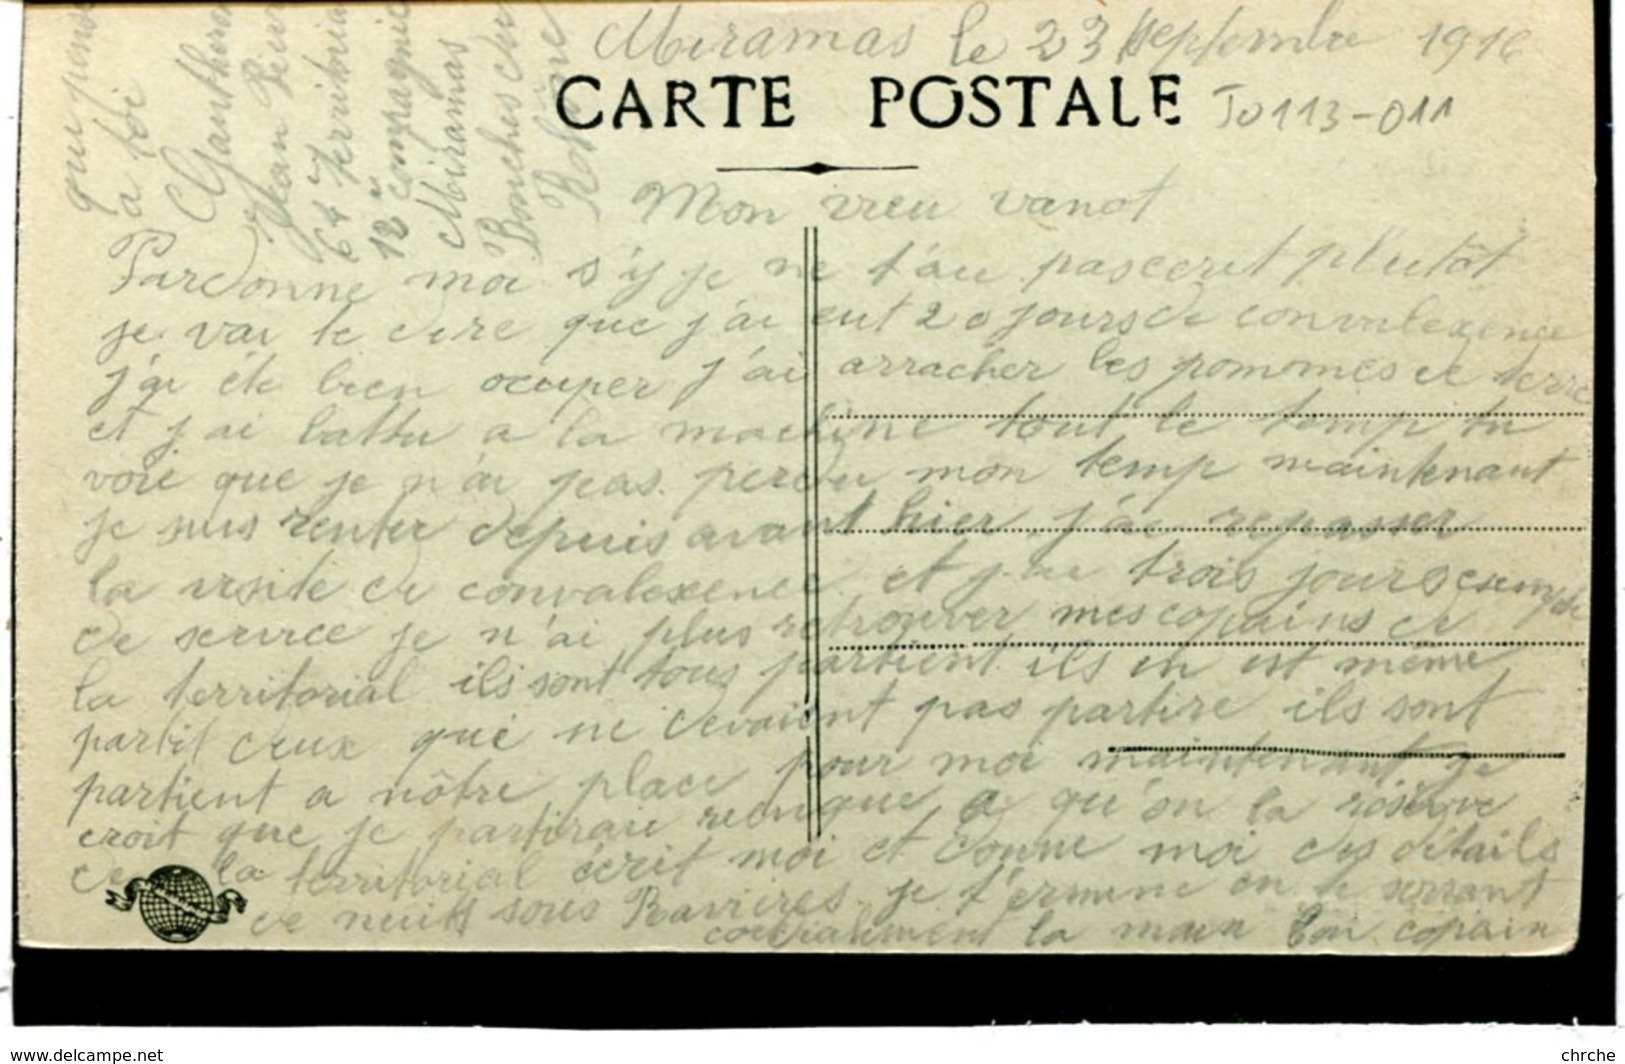 Miramas le 23 septembre 1916
CARTE POSTALE
Jo113-011
Mon vieu vanot
Pardonne moi s'y je ne t'ai pas ecrit plutôt
je vai te dire que j'ai eut 20 jours de convalexence
j'ai été bien ocuper j'ai arracher les pommes de terre
et j'ai battu a la machine tout le temp tu
voie que je n'ai pas perdu mon temp maintenant
je suis renter depuis avant hier j'ai repasser
la visite de convalexence et j'ai trois jours exempte
de service je n'ai plus retrouver mes copains de
la territorial ils sont tous partient ils en est même
partit ceux que ne devaiont pas partire ils sont
partient a nôtre place pour moi maintenant je
croit que je partirai a qu'on la réserve
de la territorial écrit moi et donne moi des détails
de nuits sous Ravières je t'ermine en te serrant
cordialement la main ton copain
qui pense
a toi
Gautheron
Jean
64e Territorial
12e compagnie
Miramas
Bouches du
Rohône
www.delcampe.net
chrche